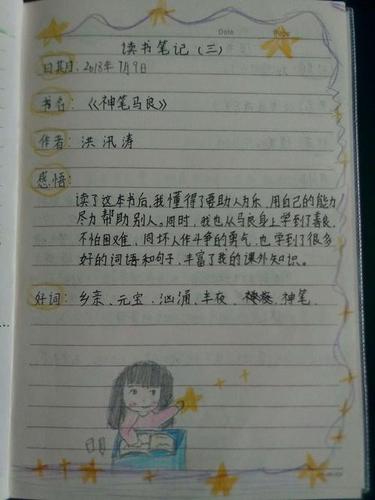 Date
读书笔记(三)
日期: 2018年7月9日
书名:《神笔马良》
作者: 洪汛涛
感悟:
读了这本书后,我懂得了要助人为乐,用自己的能力
尽力帮助别人。同时,我也从马良身上学到了善良、
不怕困难、同坏人作斗争的勇气,也学到了很多
好的词语和句子,丰富了我的课外知识。
好词: 乡亲、元宝、汹涌、半夜、神笔